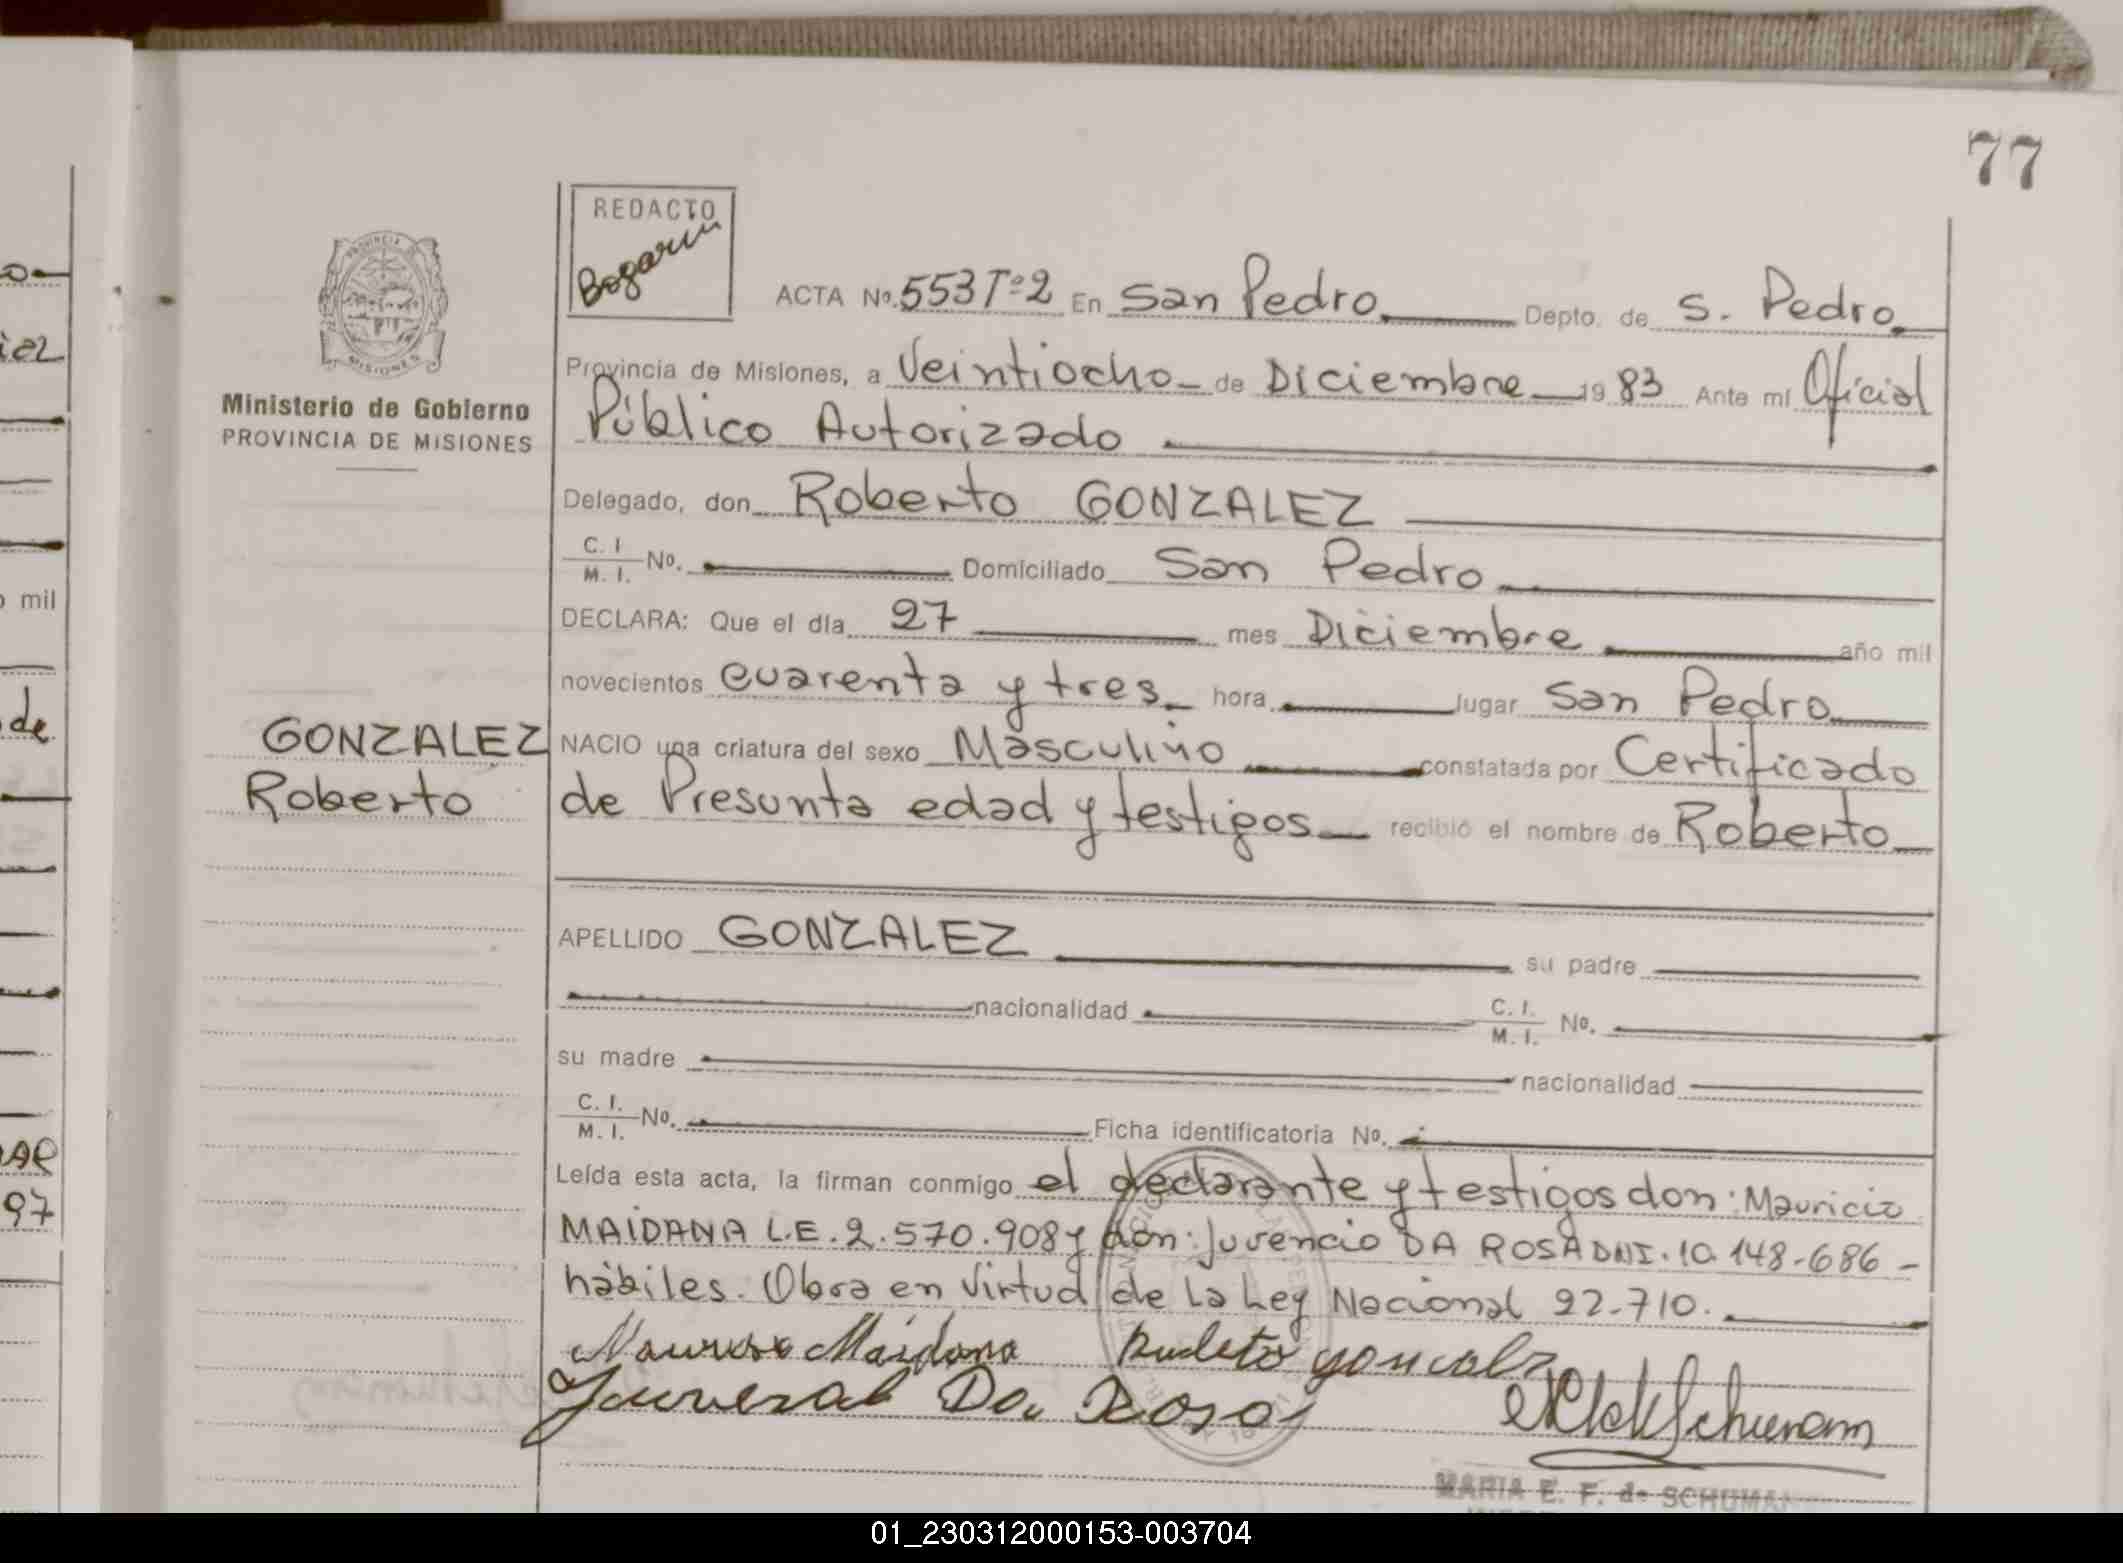 77
REDACTO
Bogarin
ACTA No. 553 Tº 2 En San Pedro Depto. de S. Pedro
Provincia de Misiones, a Veintiocho de Diciembre 19 83 Ante mi Oficial
Público Autorizado
Delegado, don Roberto GONZALEZ
C. I. M. I. No. Domiciliado San Pedro
DECLARA: Que el día 27 mes Diciembre año mil
novecientos cuarenta y tres hora lugar San Pedro
NACIO una criatura del sexo Masculino constatada por Certificado
de Presunta edad y testigos recibió el nombre de Roberto
APELLIDO GONZALEZ su padre
nacionalidad C. I. M. I. No.
su madre nacionalidad
C. I. M. I. No. Ficha identificatoria No.
Leída esta acta, la firman conmigo el declarante y testigos don: Mauricio
MAIDANA L.E. 2.570.908 y don: Juvencio DA ROSA DNI. 10.148-686 -
hábiles. Obra en Virtud de la Ley Nacional 22.710.
Maidana
Da Rosa
MARIA E. F. de SCHUMAN
PROVINCIA DE
MISIONES
Ministerio de Gobierno
PROVINCIA DE MISIONES
GONZALEZ
Roberto
mil
de
97
01_230312000153-003704